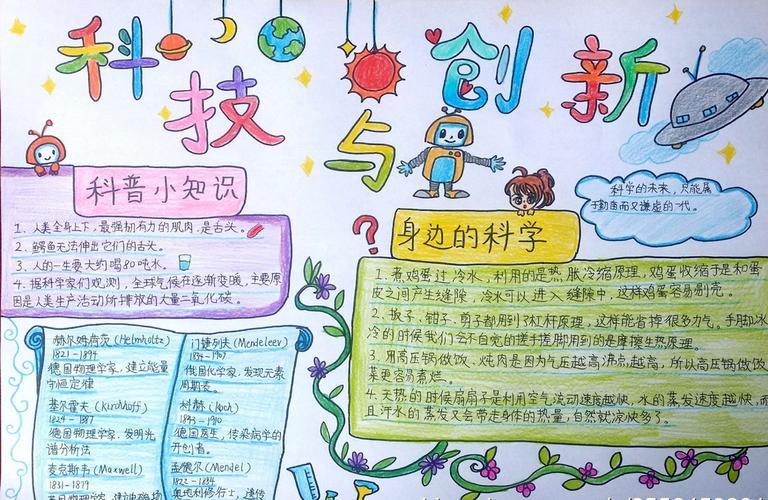 科技与创新
科普小知识
1、人类全身上下，最强韧有力的肌肉，是舌头。
2、鳄鱼无法伸出它们的舌头。
3、人的一生要大约喝80吨水。
4、据科学家们观测，全球气候在逐渐变暖，主要原
因是人类生产活动所排放的大量二氧化碳。
赫尔姆荷茨(Helmholtz)
1821-1894
德国物理学家，建立能量
守恒定律
基尔霍夫(Kirchhoff)
1824-1887
德国物理学家，发明光
谱分析法
麦克斯韦(Maxwell)
1831-1879
门捷列夫(Mendeleev)
1834-1907
俄国化学家，发现元素
周期表。
科赫(Koch)
1843-1910
德国医生，传染病学的
开创者。
孟德尔(Mendel)
1822-1884
奥地利修行士，遗传
科学的未来，只能属
于勤奋而又谦虚的一代。
?
身边的科学
1、煮鸡蛋过冷水，利用的是热胀冷缩原理，鸡蛋收缩于是和蛋
皮之间产生缝隙，冷水可以进入缝隙中，这样鸡蛋容易剥壳。
2、扳子、钳子、剪子都用到了杠杆原理，这样能省掉很多力气。手脚冰
冷的时候我们会不自觉的搓手搓脚用到的是摩擦生热原理。
3、用高压锅做饭、炖肉是因为气压越高沸点越高，所以高压锅做饭
菜更容易煮烂。
4、天热的时候扇扇子是利用空气流动速度越快，水的蒸发速度越快，而
且汗水的蒸发又会带走身体的热量，自然就凉快多了。